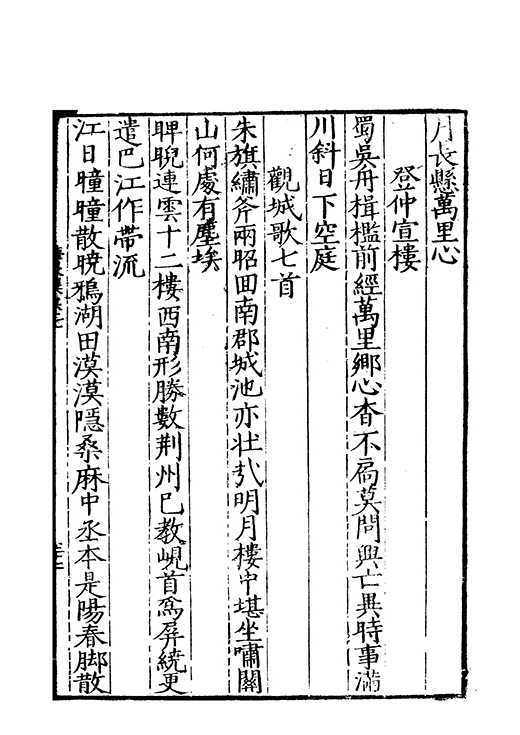 月長懸萬里心
登仲宣樓
蜀吳舟楫檻前經萬里鄉心杳不扃莫問興亡異時事滿
川斜日下空庭
觀城歌七首
朱旗繡斧兩昭回南郡城池亦壮㢤明月樓中堪坐嘯關
山何處有塵埃
睥睨連雲十二樓西南形勝數荆州已教峴首爲屏繞更
遣巴江作帶流
江日曈曈散曉鴉湖田漠漠隱桑麻中丞本是陽春脚散